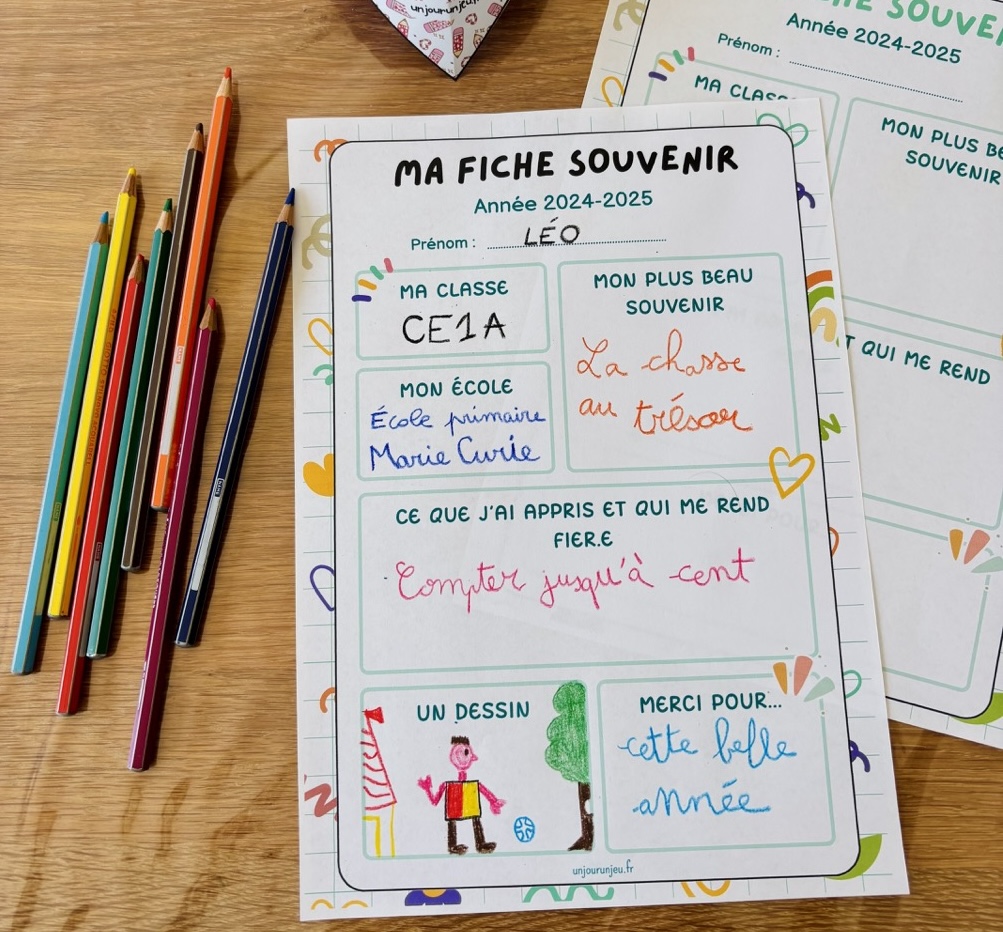 unjourunjeu.fr
MA FICHE SOUVENIR
Année 2024-2025
Prénom : LÉO
MA CLASSE
CE1A
MON ÉCOLE
École primaire
Marie Curie
MON PLUS BEAU
SOUVENIR
La chasse
au trésor
CE QUE J'AI APPRIS ET QUI ME REND
FIER.E
Compter jusqu'à cent
UN DESSIN
MERCI POUR...
cette belle
année
unjourunjeu.fr
HE SOUVE
Année 2024-2025
Prénom :
MA CLASSE
MON PLUS BE
SOUVENIR
T QUI ME REND